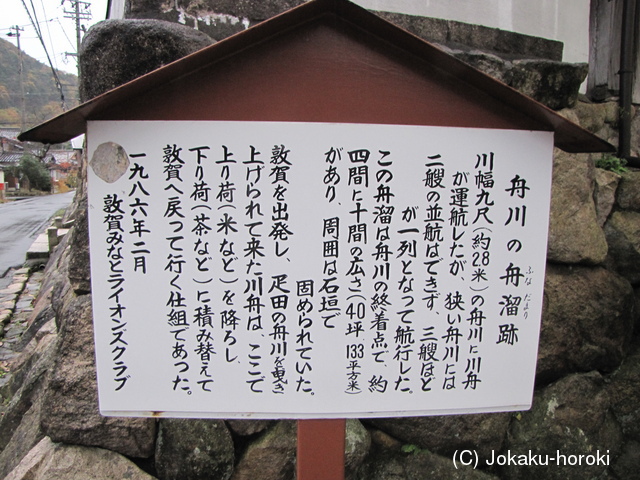 舟川の舟溜跡
ふなだまり
川幅九尺(約2.8米)の舟川に川舟
が運航したが、狭い舟川には
二艘の並航はできず、三艘ほど
が一列となって航行した。
この舟溜は舟川の終着点で、約
四間に十間の広さ(40坪 133平方米)
があり、周囲は石垣で
固められていた。
敦賀を出発し、疋田の舟川を曳き
上げられて来た川舟は、ここで
上り荷(米など)を降ろし、
下り荷(茶など)に積み替えて
敦賀へ戻って行く仕組であった。
一九八六年二月
敦賀みなとライオンズクラブ
(C) Jokaku-horoki